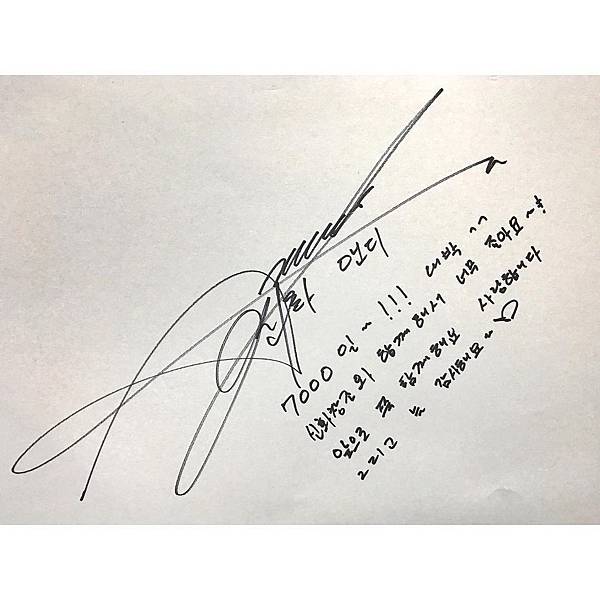 신화 앤디
7000일~!!! 대박 ^^
신화창조와 함께해서 너무 좋아요~!
앞으로 쭉 함께해요 사랑합니다
그리고 늘 감사해요~♡